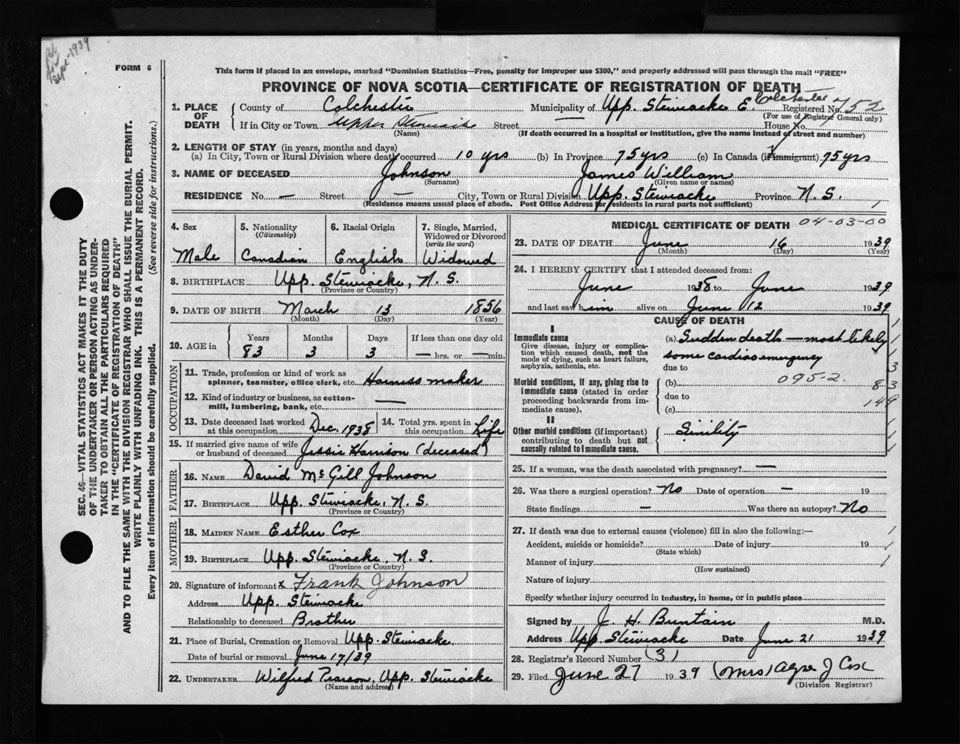 Sept-1939
FORM 6
This form if placed in an envelope, marked "Dominion Statistics—Free, penalty for improper use $300," and properly addressed will pass through the mail "FREE"
PROVINCE OF NOVA SCOTIA—CERTIFICATE OF REGISTRATION OF DEATH
1. PLACE OF DEATH
County of Colchester Municipality of Upp. Stewiacke E. Colchester Registered No. 452
(For use of Registrar General only)
If in City or Town Upper Stewiacke Street House No.
(Name) (If death occurred in a hospital or institution, give the name instead of street and number)
2. LENGTH OF STAY (in years, months and days)
(a) In City, Town or Rural Division where death occurred 10 yrs (b) In Province 75 yrs (c) In Canada (if immigrant) 75 yrs
3. NAME OF DECEASED Johnson James William
(Surname) (Given name or names)
RESIDENCE No. — Street — City, Town or Rural Division Upp. Stewiacke Province N. S.
(Residence means usual place of abode. Post Office Address for residents in rural parts not sufficient)
4. Sex Male
5. Nationality (Citizenship) Canadian
6. Racial Origin English
7. Single, Married, Widowed or Divorced (write the word) Widowed
8. BIRTHPLACE Upp. Stewiacke, N. S.
(Province or Country)
9. DATE OF BIRTH March 13 1856
(Month) (Day) (Year)
10. AGE in Years 83 Months 3 Days 3 If less than one day old — hrs. or — min.
OCCUPATION
11. Trade, profession or kind of work as spinner, teamster, office clerk, etc. Harness maker
12. Kind of industry or business, as cotton-mill, lumbering, bank, etc. —
13. Date deceased last worked at this occupation Dec. 1938 14. Total yrs. spent in this occupation Life
15. If married give name of wife or husband of deceased Jessie Harrison (deceased)
FATHER
16. NAME David McGill Johnson
17. BIRTHPLACE Upp. Stewiacke, N. S.
(Province or Country)
MOTHER
18. MAIDEN NAME Esther Cox
19. BIRTHPLACE Upp. Stewiacke, N. S.
(Province or Country)
20. Signature of informant x Frank Johnson
Address Upp. Stewiacke
Relationship to deceased Brother
21. Place of Burial, Cremation or Removal Upp. Stewiacke
Date of burial or removal June 17/39
22. UNDERTAKER Wilfred Pearson, Upp. Stewiacke
(Name and address)
MEDICAL CERTIFICATE OF DEATH 04-03-00
23. DATE OF DEATH June 16 1939
(Month) (Day) (Year)
24. I HEREBY CERTIFY that I attended deceased from:
June 1938 to June 1939
and last saw him alive on June 12 1939
CAUSE OF DEATH
I
Immediate cause
Give disease, injury or complication which caused death, not the mode of dying, such as heart failure, asphyxia, asthenia, etc.
(a) Sudden death — most likely
some cardiac emergency
due to
Morbid conditions, if any, giving rise to immediate cause (stated in order proceeding backwards from immediate cause).
(b) 095-2. 83
due to 149
(c)
II
Other morbid conditions (if important) contributing to death but not causally related to immediate cause.
Sinility
25. If a woman, was the death associated with pregnancy? —
26. Was there a surgical operation? No Date of operation — 19
State findings — Was there an autopsy? No
27. If death was due to external causes (violence) fill in also the following:—
Accident, suicide or homicide? Date of injury 19
(State which)
Manner of injury
(How sustained)
Nature of injury
Specify whether injury occurred in industry, in home, or in public place
Signed by J. H. Buntain M.D.
Address Upp Stewiacke Date June 21 1939
28. Registrar's Record Number (3)
29. Filed June 27 1939 (Mrs) J Cox
(Division Registrar)
SEC. 46—VITAL STATISTICS ACT MAKES IT THE DUTY
OF THE UNDERTAKER OR PERSON ACTING AS UNDER-
TAKER TO OBTAIN ALL THE PARTICULARS REQUIRED
IN THE "CERTIFICATE OF REGISTRATION OF DEATH"
AND TO FILE THE SAME WITH THE DIVISION REGISTRAR WHO SHALL ISSUE THE BURIAL PERMIT.
WRITE PLAINLY WITH UNFADING INK. THIS IS A PERMANENT RECORD.
Every item of information should be carefully supplied. (See reverse side for instructions.)